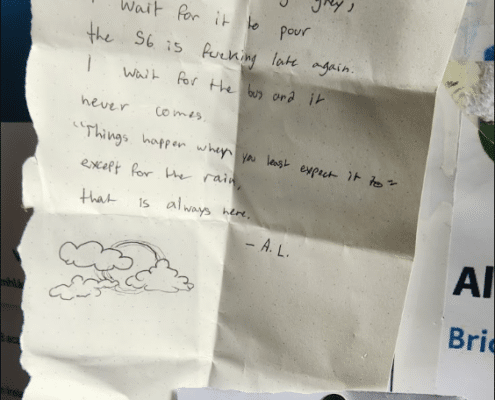 I wait for it to pour
the S6 is fucking late again.
I wait for the bus and it
never comes.
"Things happen when you least expect it to =
except for the rain,
that is always here.
- A.L.
Al
Bric